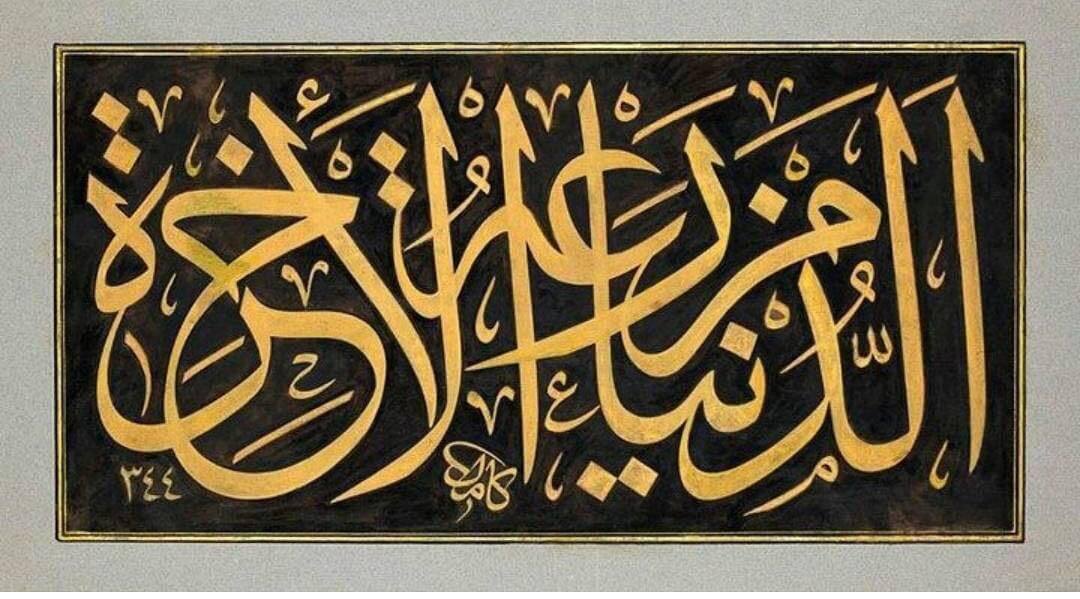 الدُّنْيَا مَزْرَعَةُ الْاٰخِرَةِ
كامل
٣٤٤